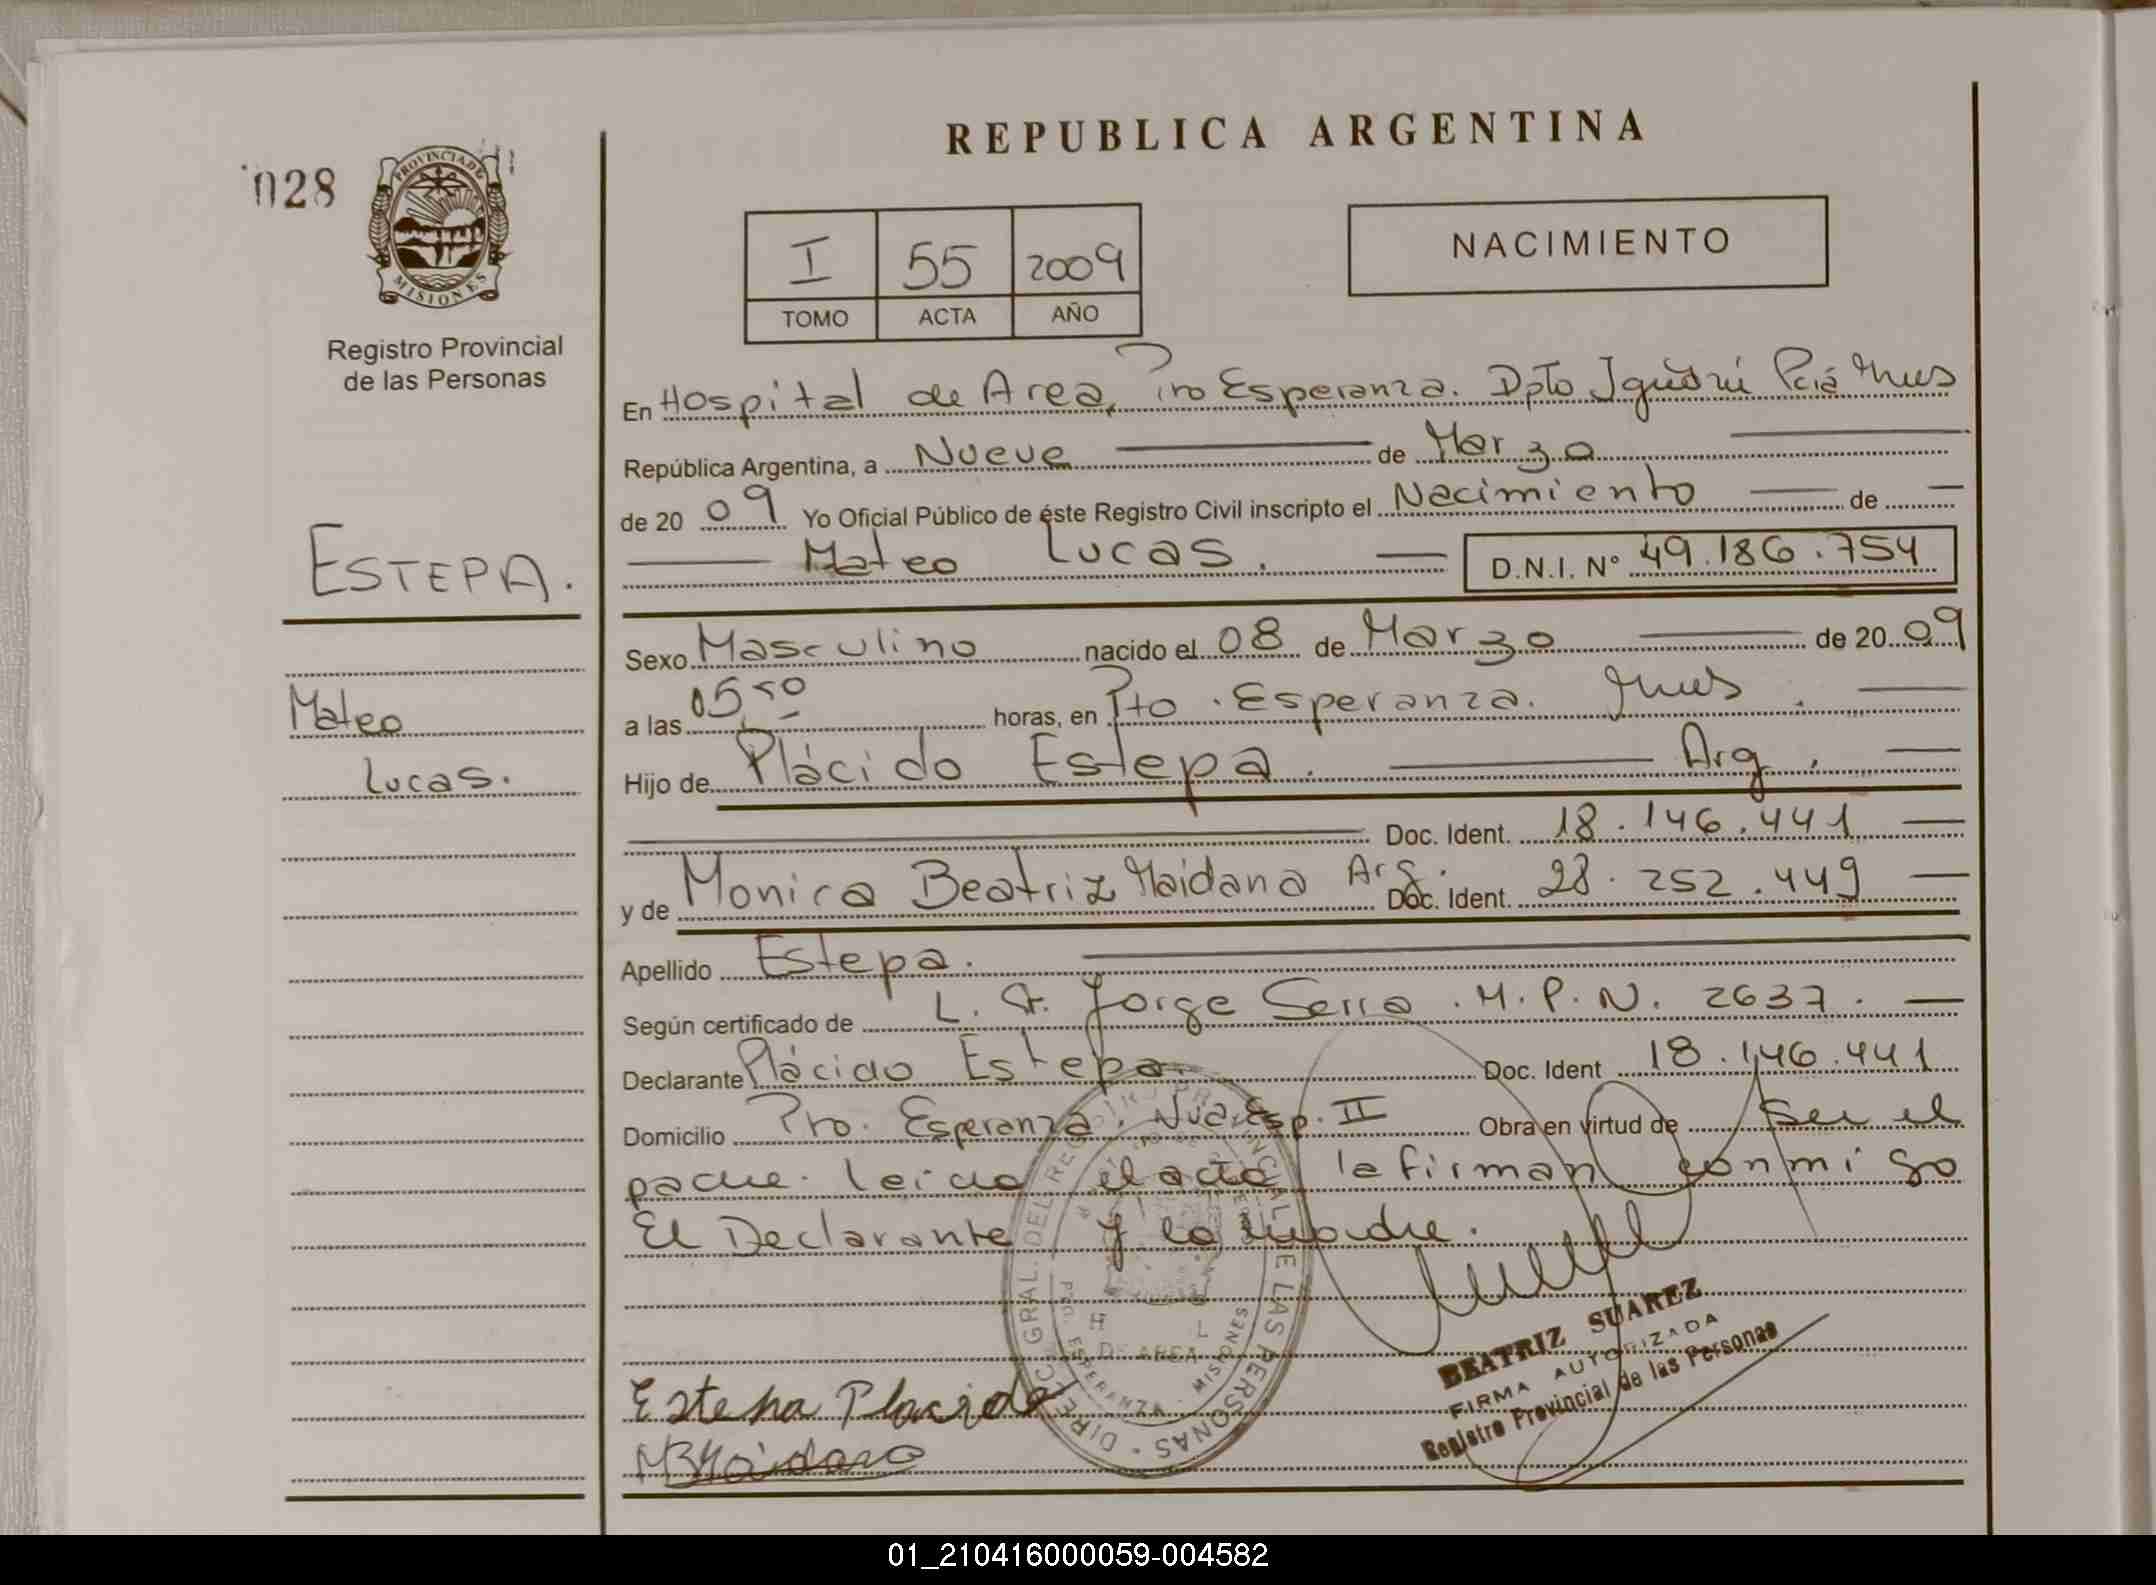 028
PROVINCIA DE
MISIONES
Registro Provincial
de las Personas
ESTEPA.
Mateo
Lucas.
REPUBLICA ARGENTINA
I 55 2009
TOMO ACTA AÑO
NACIMIENTO
En Hospital de Area, Pto Esperanza. Dpto Iguazú Pciá Mnes
República Argentina, a Nueve de Marzo
de 2009 Yo Oficial Público de éste Registro Civil inscripto el Nacimiento de
Mateo Lucas. D.N.I. Nº 49.186.754
Sexo Masculino nacido el 08 de Marzo de 2009
a las 05 50 horas, en Pto. Esperanza. Mnes.
Hijo de Plácido Estepa. Arg.
Doc. Ident. 18.146.441
y de Monica Beatriz Maidana Arg. Doc. Ident. 28.252.449
Apellido Estepa.
Según certificado de L. Jorge Serro. M.P.N. 2637.
Declarante Plácido Estepa. Doc. Ident 18.146.441
Domicilio Pto. Esperanza. Nva Esp. II Obra en virtud de ser el
padre. leida el acta la firman conmigo
El Declarante y la madre.
DIRECC. GRAL. DEL REGISTRO PROVINCIAL DE LAS PERSONAS
DE AREA
ESPERANZA - MISIONES
BEATRIZ SUAREZ
FIRMA AUTORIZADA
Registro Provincial de las Personas
Estepa Placido
MBMaidana
01_210416000059-004582